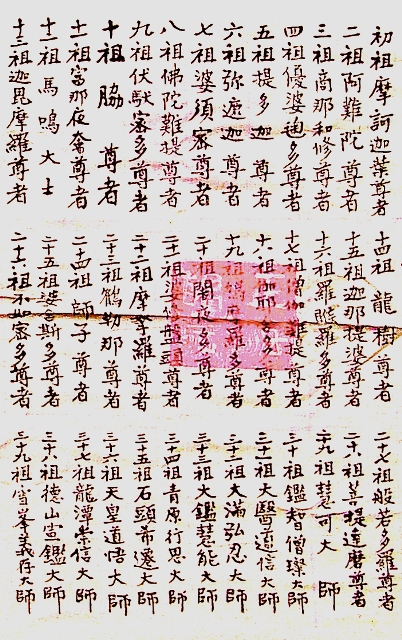 初祖摩訶迦葉尊者
二祖阿難陀尊者
三祖商那和修尊者
四祖優婆迪多尊者
五祖提多迦尊者
六祖弥遮迦尊者
七祖婆須密尊者
八祖佛陀難提尊者
九祖伏馱密多尊者
十祖脇尊者
十一祖富那夜奢尊者
十二祖馬鳴大士
十三祖迦毘摩羅尊者
十四祖龍樹尊者
十五祖迦那提婆尊者
十六祖羅睺羅多尊者
十七祖僧伽難提尊者
十八祖伽耶多尊者
十九祖鳩摩羅多尊者
二十祖闍夜多尊者
二十一祖婆盤頭尊者
二十二祖摩拏羅尊者
二十三祖鶴勒那尊者
二十四祖師子尊者
二十五祖婆舍斯多尊者
二十六祖不如密多尊者
二十七祖般若多羅尊者
二十八祖菩提達磨尊者
二十九祖慧可大師
三十祖鑑智僧璨大師
三十一祖大醫道信大師
三十二祖大滿弘忍大師
三十三祖大鑑慧能大師
三十四祖青原行思大師
三十五祖石頭希遷大師
三十六祖天皇道悟大師
三十七祖龍潭崇信大師
三十八祖德山宣鑑大師
三十九祖雪峯義存大師